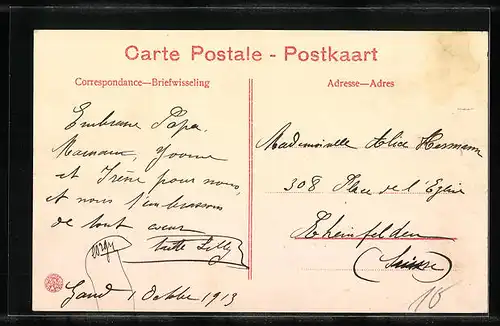 Carte Postale - Postkaart
Correspondance—Briefwisseling
Embrasse Papa,
Maman, Yvonne
et Irène pour nous,
et nous t'embrassons
de tout cœur
tante Lilly
Gand 1 Octobre 1913
Adresse—Adres
Mademoiselle Alice Hermann
308 Place de l'Eglise
Rheinfelden
(Suisse)